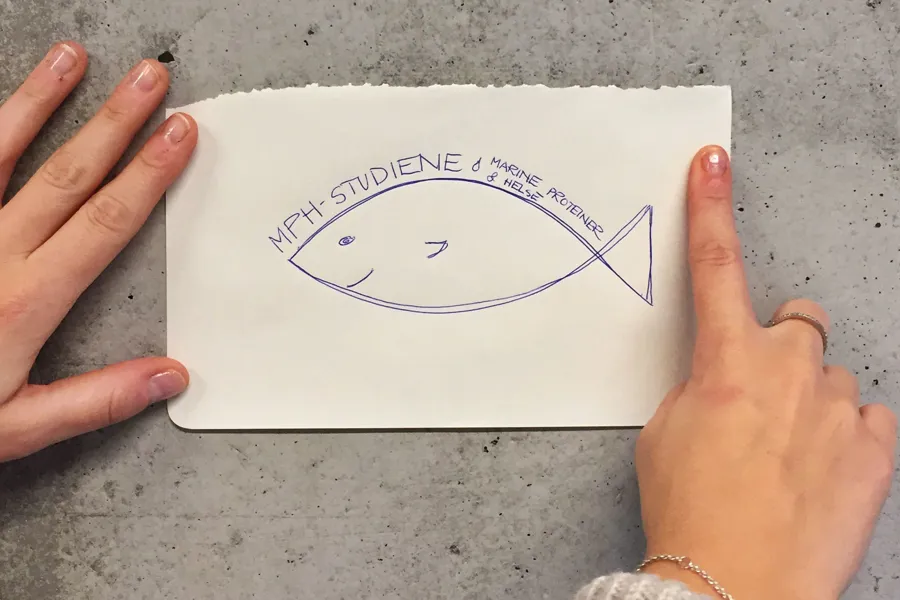 MPH-STUDIENE
MARINE PROTEINER
& HELSE